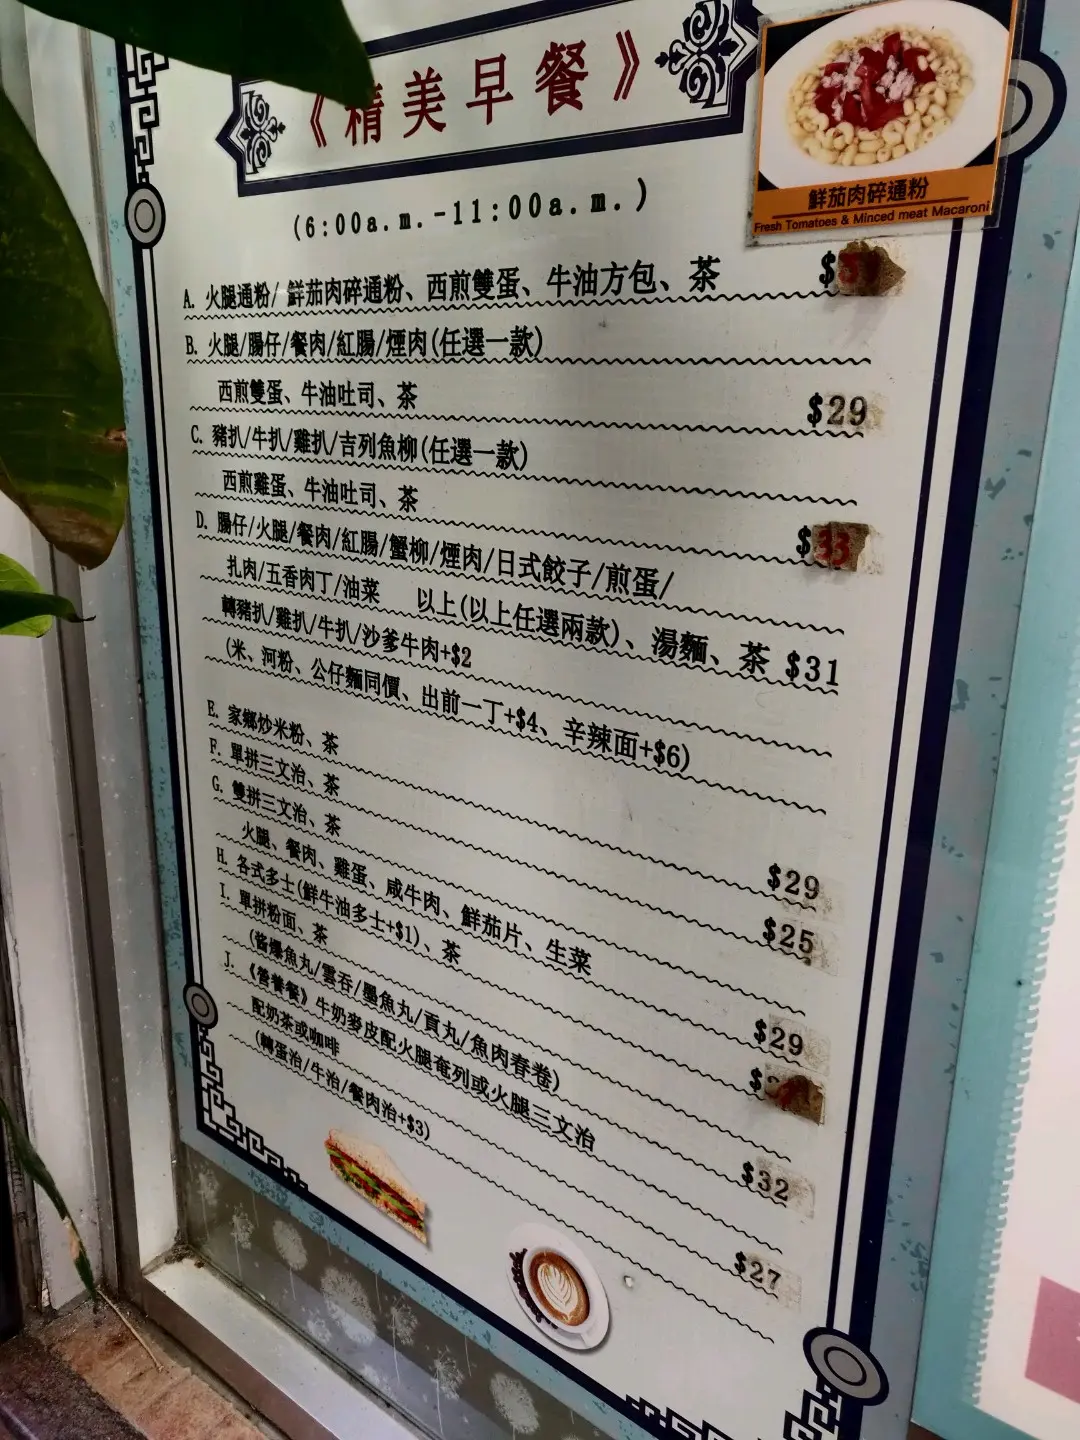 《精美早餐》
鮮茄肉碎通粉
Fresh Tomatoes & Minced meat Macaroni
(6:00a.m.-11:00a.m.)
A. 火腿通粉/鮮茄肉碎通粉、西煎雙蛋、牛油方包、茶 $
B. 火腿/腸仔/餐肉/紅腸/煙肉(任選一款)
西煎雙蛋、牛油吐司、茶 $29
C. 豬扒/牛扒/雞扒/吉列魚柳(任選一款)
西煎雞蛋、牛油吐司、茶 $33
D. 腸仔/火腿/餐肉/紅腸/蟹柳/煙肉/日式餃子/煎蛋/
扎肉/五香肉丁/油菜 以上(以上任選兩款)、湯麵、茶 $31
轉豬扒/雞扒/牛扒/沙爹牛肉+$2
(米、河粉、公仔麵同價、出前一丁+$4、辛辣面+$6)
E. 家鄉炒米粉、茶 $29
F. 單拼三文治、茶 $25
G. 雙拼三文治、茶 $29
火腿、餐肉、雞蛋、咸牛肉、鮮茄片、生菜
H. 各式多士(鮮牛油多士+$1)、茶 $
I. 單拼粉面、茶 $32
(醬爆魚丸/雲吞/墨魚丸/貢丸/魚肉春卷)
J. 《營養餐》牛奶麥皮配火腿奄列或火腿三文治 $27
配奶茶或咖啡
(轉蛋治/牛治/餐肉治+$3)